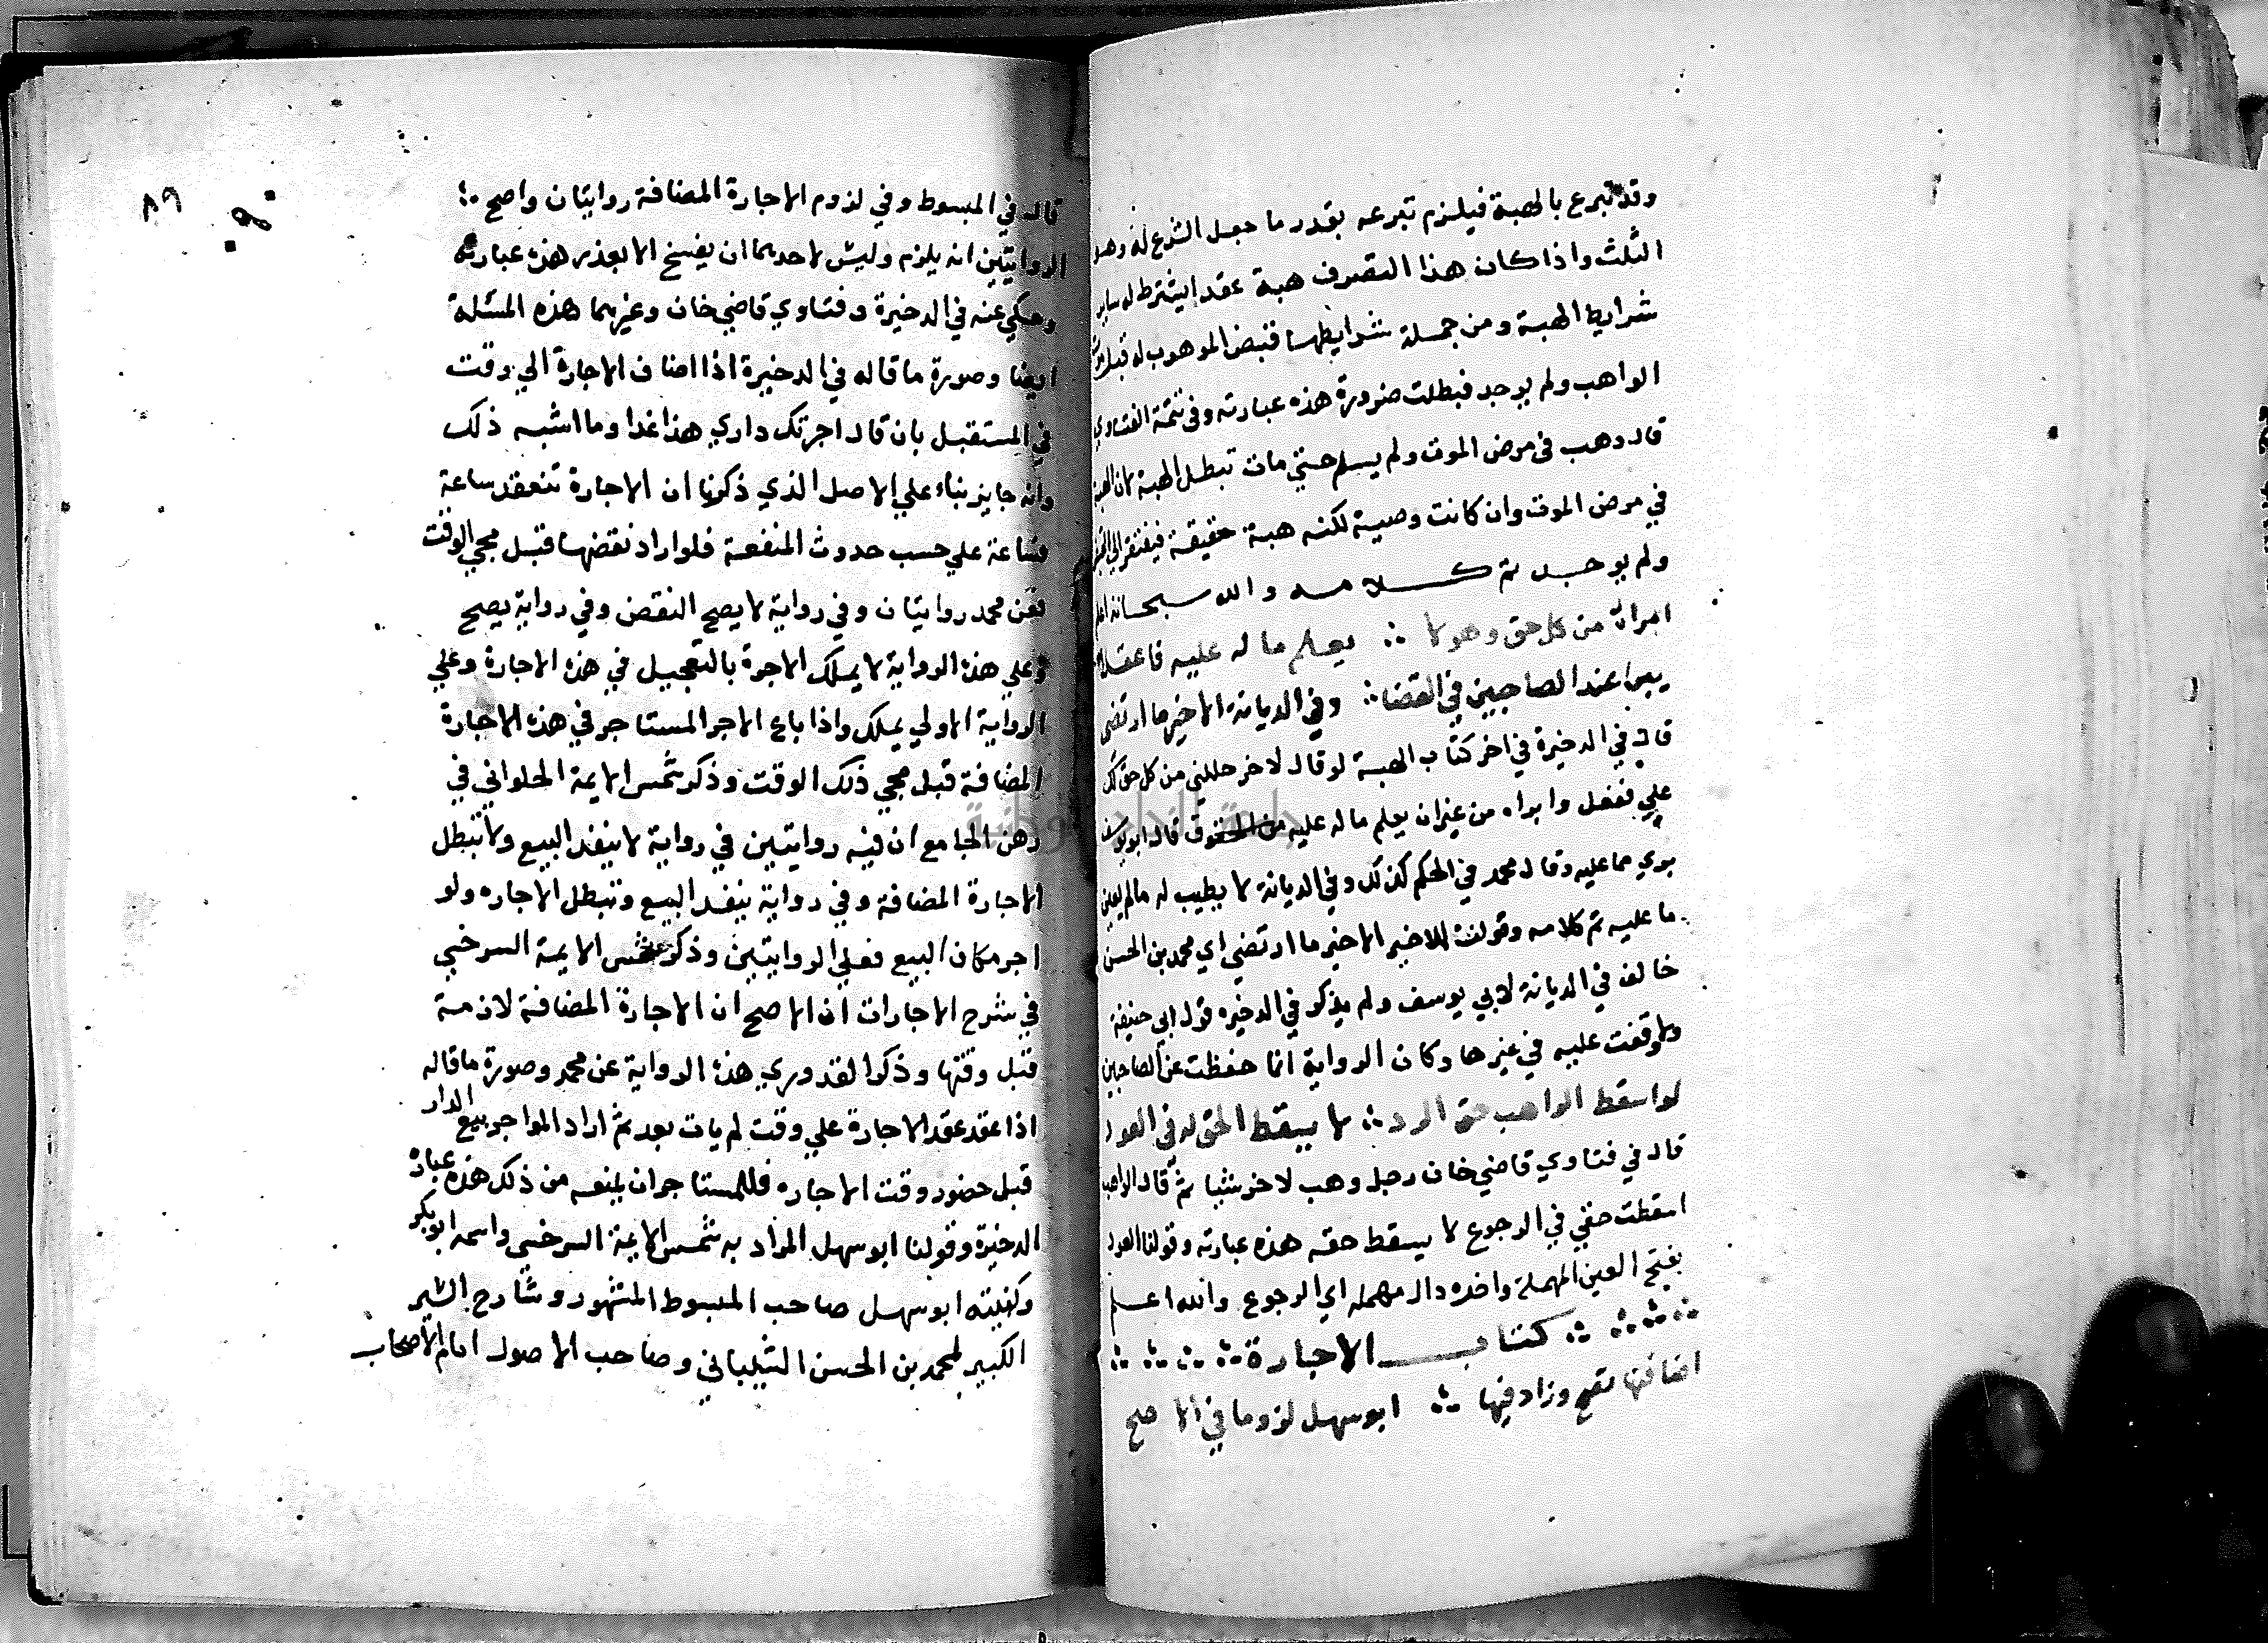 وقد تبرع بالهبة فيلزم تبرعه بقدر ما جعل الشرع له وهو
الثلث واذا كان هذا التصرف هبة عقدا يشترط له ساير
شرايط الهبة ومن جملة شرايطها قبض الموهوب له قبل موت
الواهب ولم يوجد فبطلت ضرورة هذه عبارته وفي تتمة الفتاوي
قال وهب في مرض الموت ولم يسلم حتي مات تبطل الهبة لان الهبة
في مرض الموت وان كانت وصية لكنه هبة حقيقة فيفتقر الي القبض
ولم يوجد تم كلامه والله سبحانه اعلم
ابراه من كل حق وهو لا ∴ يعلم ما له عليه فاعقلا
يبرا عند الصاحبين في القضا ∴ وفي الديانة الاخير ما ارتضى
قال في الدخيرة في اخر كتاب الهبة لو قال لاخر حللني من كل حق لك
علي ففعل وابراه من غير ان يعلم ما له عليه من الحقوق قال ابو يوسف
بري مما عليه وقال محمد في الحكم كذلك وفي الديانة لا يطيب له مالم يعلن
ما عليه تم كلامه وقولنا الاخير ما ارتضي اي محمد بن الحسن
خالف في الديانة لابي يوسف ولم يذكر في الدخيره قول ابي حنيفة
ولا وقفت عليه في غيرها وكان الرواية انما حفظت عن الصاحبين
لو اسقط الواهب حق الرد ∴ لا يسقط الحق له في العود
قال في فتاوي قاضي خان رجل وهب لاخر شيا ثم قال الواهب
اسقطت حقي في الرجوع لا يسقط حقه هذه عبارته وقولنا العود
بفتح العين المهملة واخره دال مهمله اي الرجوع والله اعلم
∴ ∴ ∴ كتاب الاجارة ∴ ∴ ∴
اضافتها تصح وزاد فيها ∴ ابو سهل لزوما في الاصح
٨٩
قال في المبسوط وفي لزوم الاجارة المضافة روايتان واصح
الروايتين انه يلزم وليس لاحدهما ان يفسخ الا بعذر هذه عبارته
وحكي عنه في الدخيرة وفتاوي قاضي خان وغيرهما هذه المسئلة
ايضا وصورة ما قاله في الدخيرة اذا اضاف الاجارة الي وقت
في المستقبل بان قال اجرتك داري هذا غدا وما اشبه ذلك
وانه جايز بناء علي الاصل الذي ذكرنا ان الاجارة تنعقد ساعة
فساعة علي حسب حدوث المنفعة فلو اراد نقضها قبل مجي الوقت
فعن محمد روايتان وفي رواية لا يصح النقض وفي رواية يصح
وعلي هذه الرواية لا يملك الاجرة بالتعجيل في هذه الاجارة وعلي
الرواية الاولي يملك واذا باع الاجر المستاجر في هذه الاجارة
المضافة قبل مجي ذلك الوقت وذكر شمس الايمة الحلواني في
رهن الجامع ان فيه روايتين في رواية لا ينفذ البيع ولا تبطل
الاجارة المضافة وفي رواية ينفذ البيع وتبطل الاجاره ولو
اجر مكان البيع فعلي الروايتين وذكر شمس الايمة السرخسي
في شرح الاجارات ان الاصح ان الاجارة المضافة لازمة
قبل وقتها وذكر القدوري هذه الرواية عن محمد وصورة ما قاله
اذا عقد عقد الاجارة علي وقت لم يات بعد ثم اراد المواجر بيع الدار
قبل حضور وقت الاجاره فللمستاجر ان يمنعه من ذلك هذه عبارة
الدخيرة وقولنا ابو سهل المراد به شمس الايمة السرخسي واسمه ابو بكر
وكنيته ابو سهل صاحب المبسوط المشهور وشارح السير
الكبير لمحمد بن الحسن الشيباني وصاحب الاصول امام الاصحاب